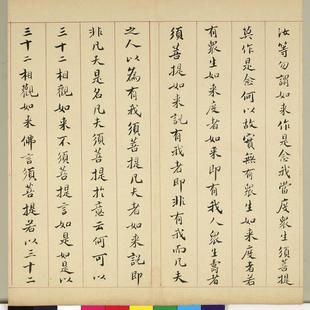 汝等勿謂如来作是念我當度衆生須菩提
莫作是念何以故實無有衆生如来度者若
有衆生如来度者如来即有我人衆生壽者
須菩提如来說有我者即非有我而凡夫
之人以為有我須菩提凡夫者如来說即
非凡夫是名凡夫須菩提於意云何可以
三十二相觀如来不須菩提言如是如是以
三十二相觀如来佛言須菩提若以三十二